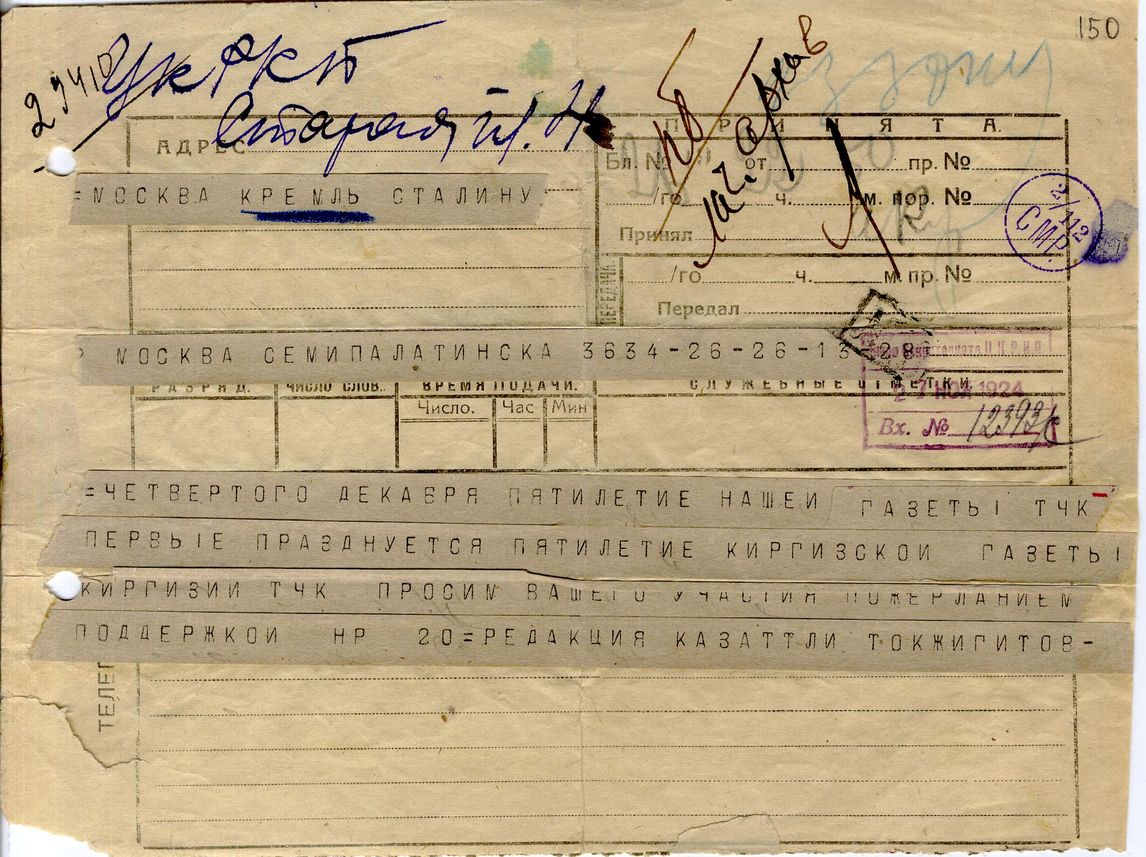 150
ЦК РКП
Старая пл.
АДРЕС
ПРИНЯТА.
Бл. № от пр. №
/го ч. м. пор. №
Принял
/го ч. м. пр. №
Передал
ПЕРЕДАЧА
2/112
СМР.
=МОСКВА КРЕМЛЬ СТАЛИНУ
МОСКВА СЕМИПАЛАТИНСКА 3634-26-26-13 28
РАЗРЯД. ЧИСЛО СЛОВ. ВРЕМЯ ПОДАЧИ. СЛУЖЕБНЫЕ ОТМЕТКИ.
Число. Час Мин
27 НОЯ 1924
Вх. №
=ЧЕТВЕРТОГО ДЕКАБРЯ ПЯТИЛЕТИЕ НАШЕЙ ГАЗЕТЫ ТЧК
ПЕРВЫЕ ПРАЗДНУЕТСЯ ПЯТИЛЕТИЕ КИРГИЗСКОЙ ГАЗЕТЫ
КИРГИЗИИ ТЧК ПРОСИМ ВАШЕГО УЧАСТИЯ ПОЖЕРЛАНИЕМ
ПОДДЕРЖКОЙ НР 20=РЕДАКЦИЯ КАЗАТТЛИ ТОКЖИГИТОВ-
ТЕЛЕГ